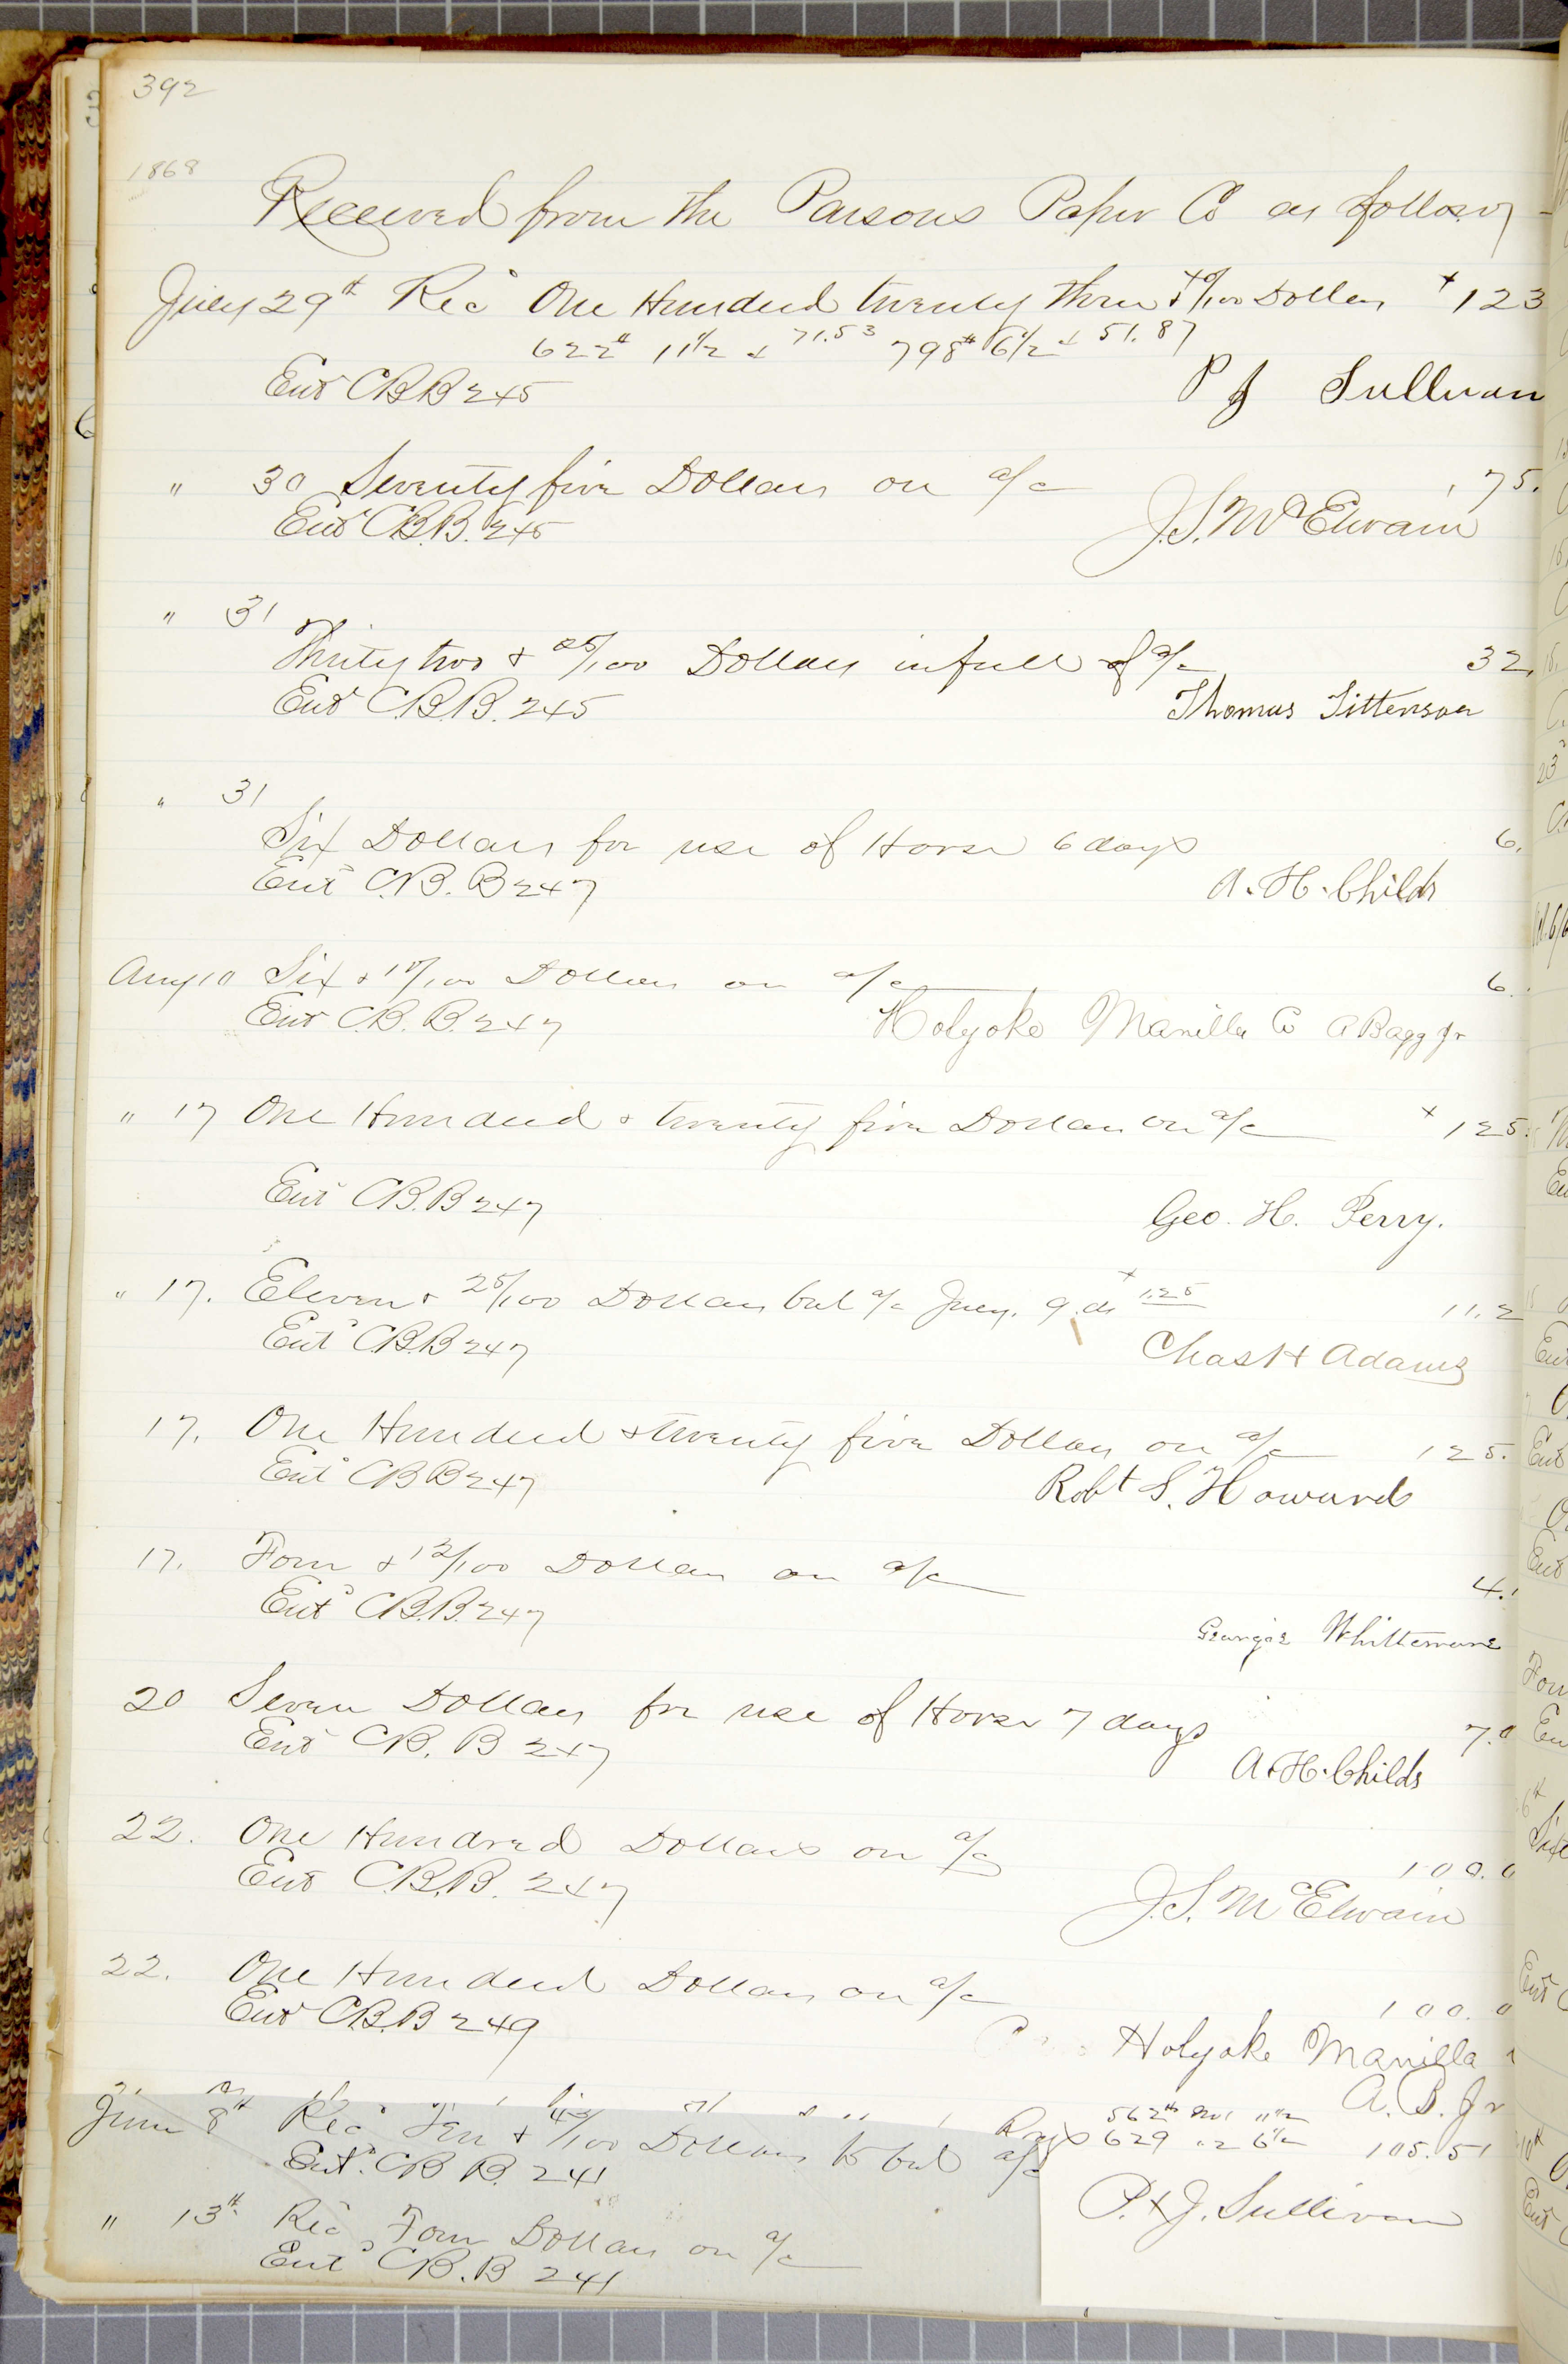 392
1868
Received from the Parsons Paper Co as follows
July 29th Rec'd One Hundred twenty three & 40/100 Dollars × 123
622# 11 1/2 & 71.53 798# 6 1/2 & 51.87
Entd C.B.B 245 P J Sullivan
" 30 Seventy five Dollars on a/c 75.
Entd C.B.B. 245 J.S. McElwain
" 31
Thirty two & 25/100 Dollars in full of a/c 32.
Entd C.B.B. 245 Thomas Tittenson
" 31
Six Dollars for use of Horse 6 days 6.
Entd C.B.B 247 A. H. Childs
Aug 10 Six & 10/100 Dollars on a/c 6.
Entd C.B.B. 247 Holyoke Manilla Co A Bagg Jr
" 17 One Hundred & twenty five Dollars on a/c × 125.
Entd C.B.B 247 Geo. H. Perry.
" 17. Eleven & 25/100 Dollars bal a/c July. 9 ds × 1.25 11.2
Entd C.B.B 247 Chas H Adams
17. One Hundred & twenty five Dollars on a/c 125.
Entd C.B.B 247 Robt S. Howard
17. Four & 12/100 Dollars on a/c 4.
Entd C.B.B. 247 George Whittemore
20 Seven Dollars for use of Horse 7 days 7.0
Entd C.B.B 247 A. H. Childs
22. One Hundred Dollars on a/c 100.0
Entd C.B.B. 247 J.S. McElwain
22. One Hundred Dollars on a/c 100.0
Entd C.B.B 249 Holyoke Manilla
A. B. Jr
June 8th Rec'd Ten & 42/100 Dollars to bal a/c
Rags 562# No1 11 1/2
629 " 2 6 1/2 105.51
Entd. C.B.B. 241
P. & J. Sullivan
" 13th Rec'd Four Dollars on a/c
Entd C.B.B 241